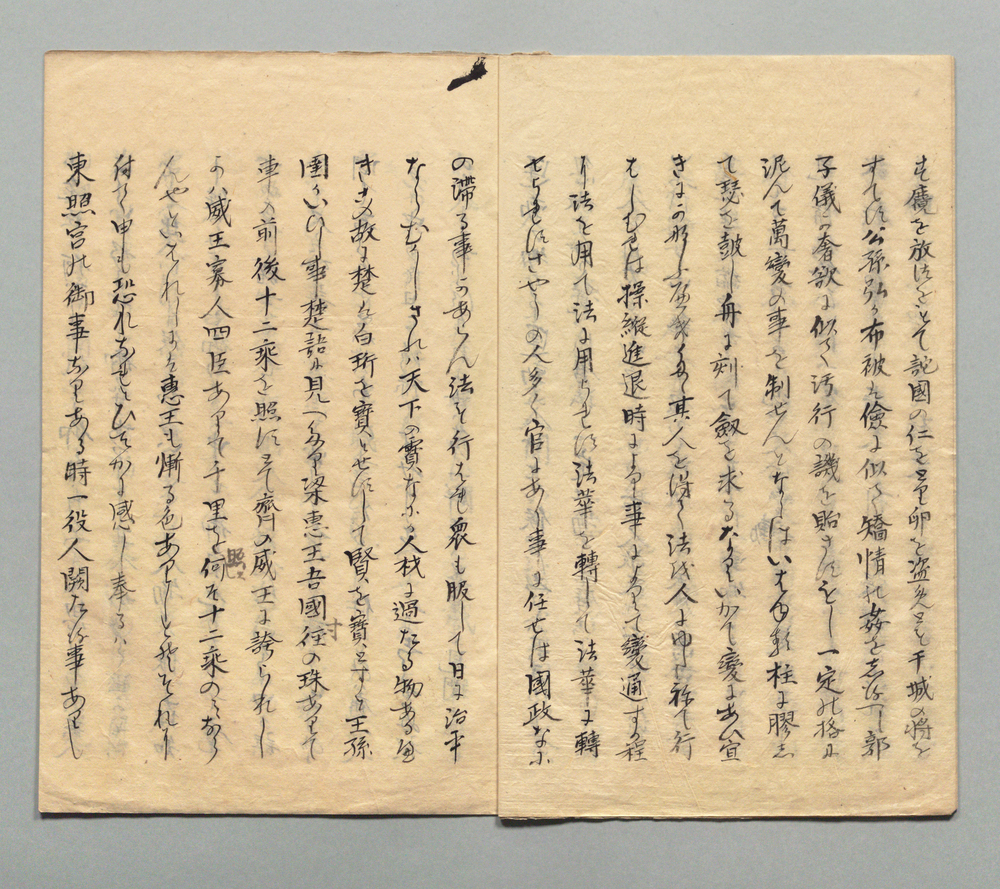 も麑を放つをもて託國の仁を々卵を盗めとも干城の將を
すてす公孫弘か布被は儉に似て矯情の姦をしるへし郭
子儀か奢欲に似て汚行の譏を貽さすもし一定の格に
泥んて萬變の事を制せんとならはいはゆる柱に膠し
て瑟を皷し舟に刻て劔を求るなりいかて變にあひ宜
きにこの其人を得て法は人に由て行
はしむるは操縦進退時により事によりて變通する程
り法を用て法に用られす法華を轉して法華に轉
せられすさやうの人多く官にあり事に任せは國政なに
の滞る事かあらん法も行はれ衆も服して日に治平
ならむかしされは天下の寳なに人材に過たる物ある
き故に楚は白珩を寳とせすして賢を寳とすと王孫
圉かいひし事楚語に見へたり梁惠王吾國徑寸の珠ありて
車の前後十二乘を照すとて齊の威王に誇られし
に威王寡人四臣ありて千里を照す何そ十二乘のみなら
んやといはれしには惠王も慚る色ありしとそそれ
付て申も恐れあれとひそかに感し奉るは
東照宮の御事なりある時一役人闕たる事ありし